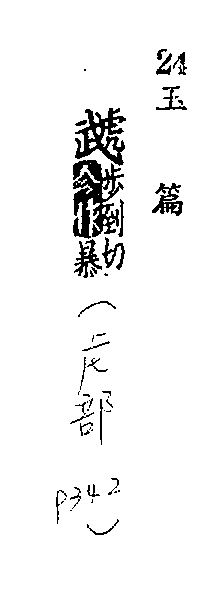 24 玉篇
虣 步倒切 今作暴
(虍部 p342)